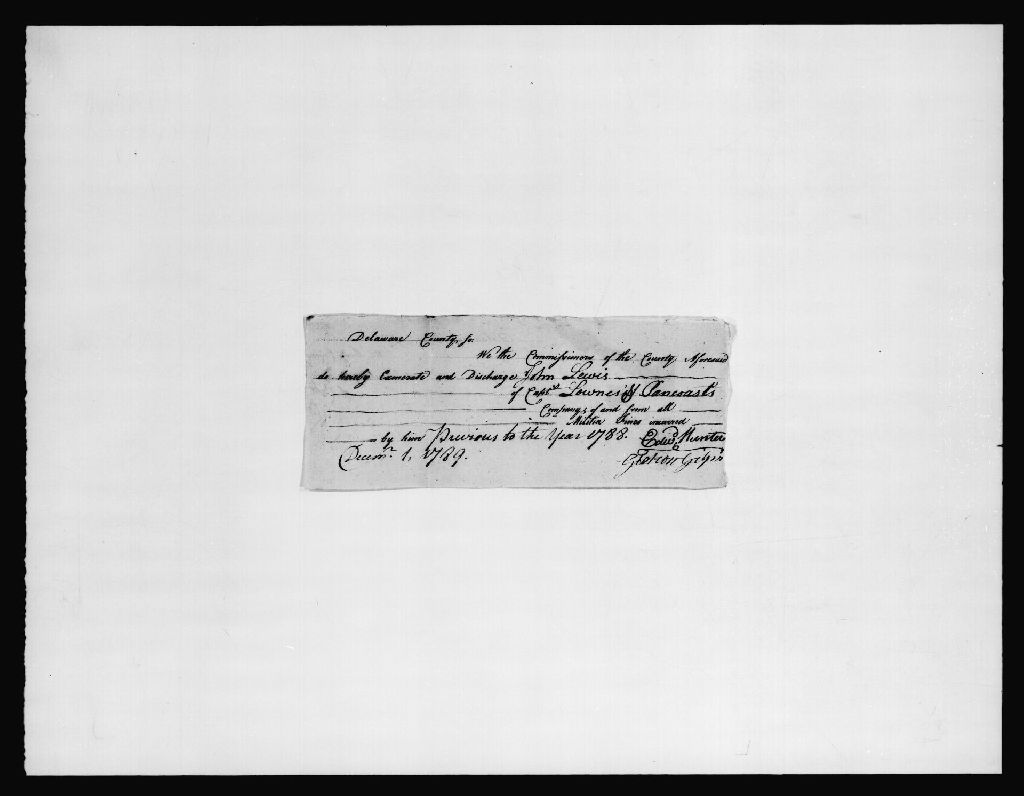 Delaware County, ss.
We the Commissioners of the County Aforesaid
do hereby Exonerate and Discharge John Lewis
of Capt.s Lownes's & Pancoast's
Company, of and from all
Militia Fines incurred
by him Previous to the Year 1788. Edwd Hunter
Decemr. 1, 1789.